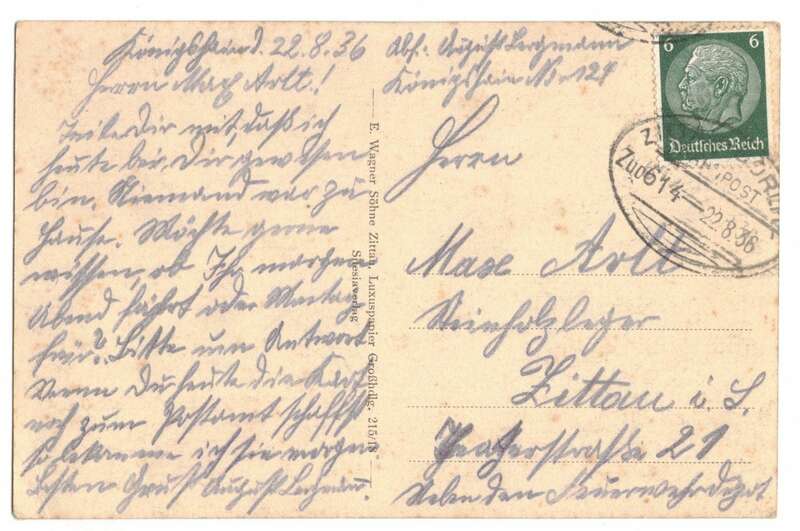 Königshain d. 22.8.36
Herrn Max Arlt!
Teile Dir mit, daß ich
heute bei Dir gewesen
bin. Niemand war zu
Hause. Möchte gerne
wissen, ob Ihr morgen
Abend fährt oder Montag
früh? Bitte um Antwort
Wenn Du heute die Karte
noch zum Postamt schaffst
so bekomme ich sie morgen
Besten Gruß August Bergmann.
E. Wagner Söhne Zittau, Luxuspapier Großhdlg. 215/18
Spezialverlag
Abs.: August Bergmann
Königshain Nr 127
6 6
Deutsches Reich
POST
Zug 614
22.8.36
Herrn
Max Arlt
Steinholzleger
Zittau i. S.
21
Neben den Feuerwehrdepot